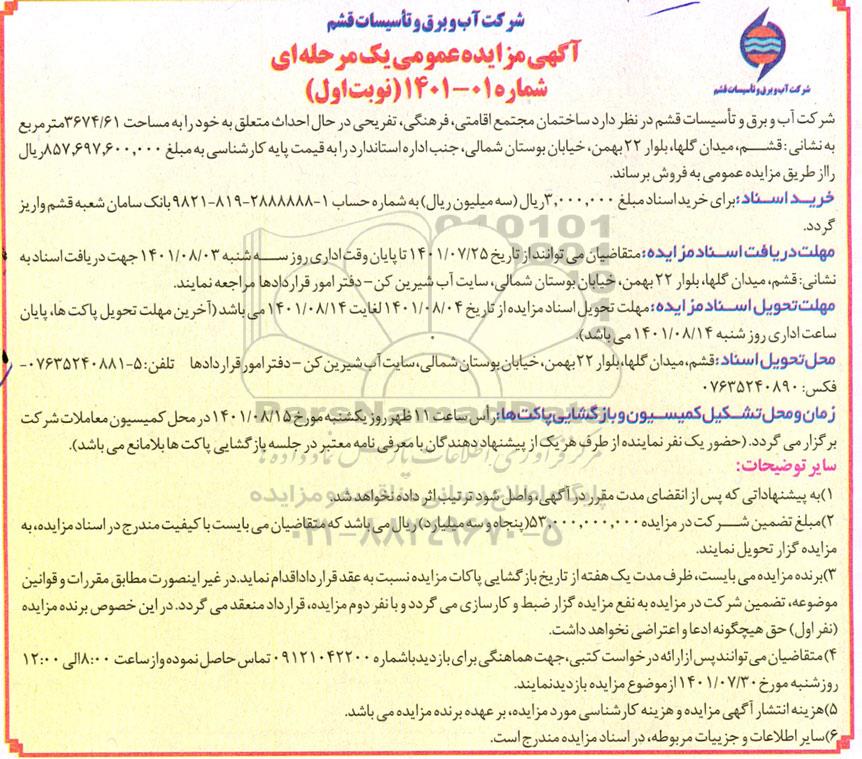 شرکت آب و برق و تأسیسات قشم
آگهی مزایده عمومی یک مرحله ای
شماره ۰۱-۱۴۰۱ (نوبت اول)
شرکت آب و برق و تأسیسات قشم
شرکت آب و برق و تأسیسات قشم در نظر دارد ساختمان مجتمع اقامتی، فرهنگی، تفریحی در حال احداث متعلق به خود را به مساحت ۳۶۷۴/۶۱ مترمربع
به نشانی: قشم، میدان گلها، بلوار ۲۲ بهمن، خیابان بوستان شمالی، جنب اداره استاندارد را به قیمت پایه کارشناسی به مبلغ ۸۵۷,۶۹۷,۶۰۰,۰۰۰ ریال
را از طریق مزایده عمومی به فروش برساند.
خرید اسناد: برای خرید اسناد مبلغ ۳,۰۰۰,۰۰۰ ریال (سه میلیون ریال) به شماره حساب ۱-۲۸۸۸۸۸۸-۸۱۹-۹۸۲۱ بانک سامان شعبه قشم واریز
گردد.
مهلت دریافت اسناد مزایده: متقاضیان می توانند از تاریخ ۱۴۰۱/۰۷/۲۵ تا پایان وقت اداری روز سه شنبه ۱۴۰۱/۰۸/۰۳ جهت دریافت اسناد به
نشانی: قشم، میدان گلها، بلوار ۲۲ بهمن، خیابان بوستان شمالی، سایت آب شیرین کن - دفتر امور قراردادها مراجعه نمایند.
مهلت تحویل اسناد مزایده: مهلت تحویل اسناد مزایده از تاریخ ۱۴۰۱/۰۸/۰۴ لغایت ۱۴۰۱/۰۸/۱۴ می باشد (آخرین مهلت تحویل پاکت ها، پایان
ساعت اداری روز شنبه ۱۴۰۱/۰۸/۱۴ می باشد).
محل تحویل اسناد: قشم، میدان گلها، بلوار ۲۲ بهمن، خیابان بوستان شمالی، سایت آب شیرین کن - دفتر امور قراردادها تلفن: ۵-۰۷۶۳۵۲۴۰۸۸۱-
فکس: ۰۷۶۳۵۲۴۰۸۹۰
زمان و محل تشکیل کمیسیون و بازگشایی پاکت ها: رأس ساعت ۱۱ ظهر روز یکشنبه مورخ ۱۴۰۱/۰۸/۱۵ در محل کمیسیون معاملات شرکت
برگزار می گردد. (حضور یک نفر نماینده از طرف هر یک از پیشنهاد دهندگان با معرفی نامه معتبر در جلسه بازگشایی پاکت ها بلامانع می باشد).
سایر توضیحات:
۱) به پیشنهاداتی که پس از انقضای مدت مقرر در آگهی، واصل شود ترتیب اثر داده نخواهد شد.
۲) مبلغ تضمین شرکت در مزایده ۵۳,۰۰۰,۰۰۰,۰۰۰ (پنجاه و سه میلیارد) ریال می باشد که متقاضیان می بایست با کیفیت مندرج در اسناد مزایده، به
مزایده گزار تحویل نمایند.
۳) برنده مزایده می بایست، ظرف مدت یک هفته از تاریخ بازگشایی پاکات مزایده نسبت به عقد قرارداد اقدام نماید. در غیر اینصورت مطابق مقررات و قوانین
موضوعه، تضمین شرکت در مزایده به نفع مزایده گزار ضبط و کارسازی می گردد و با نفر دوم مزایده، قرارداد منعقد می گردد. در این خصوص برنده مزایده
(نفر اول) حق هیچگونه ادعا و اعتراضی نخواهد داشت.
۴) متقاضیان می توانند پس از ارائه درخواست کتبی، جهت هماهنگی برای بازدید با شماره ۰۹۱۲۱۰۴۲۲۰۰ تماس حاصل نموده و از ساعت ۸:۰۰ الی ۱۲:۰۰
روز شنبه مورخ ۱۴۰۱/۰۷/۳۰ از موضوع مزایده بازدید نمایند.
۵) هزینه انتشار آگهی مزایده و هزینه کارشناسی مورد مزایده، بر عهده برنده مزایده می باشد.
۶) سایر اطلاعات و جزییات مربوطه، در اسناد مزایده مندرج است.
ParsNamadData
۰۲۱-۸۸۳۴۹۶۷۰-۵